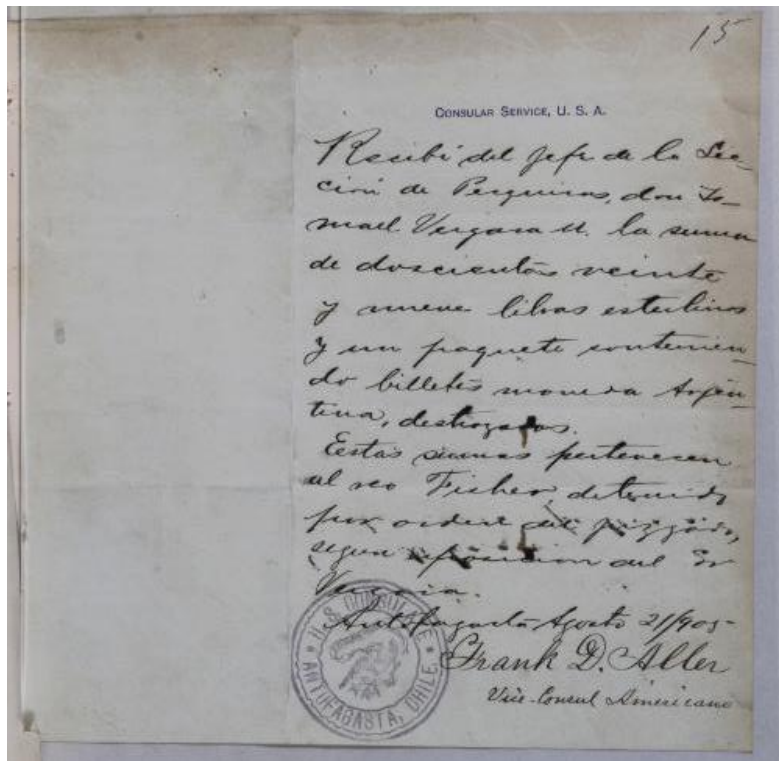 15
CONSULAR SERVICE, U. S. A.
Recibí del Jefe de la Sec-
cion de Pesquisas, don Is-
mael Vergara M. la suma
de doscientas veinte
y nueve libras esterlinas
y un paquete contenien-
do billetes moneda Argen-
tina, destrozados.
Estas sumas pertenecen
al reo Fisher, detenido
por orden del juzgado,
segun esposicion del Sr
Vergara.
Antofagasta Agosto 21/905-
Frank D. Aller
Vice-Consul Americano
U.S. CONSULATE
ANTOFAGASTA, CHILE.